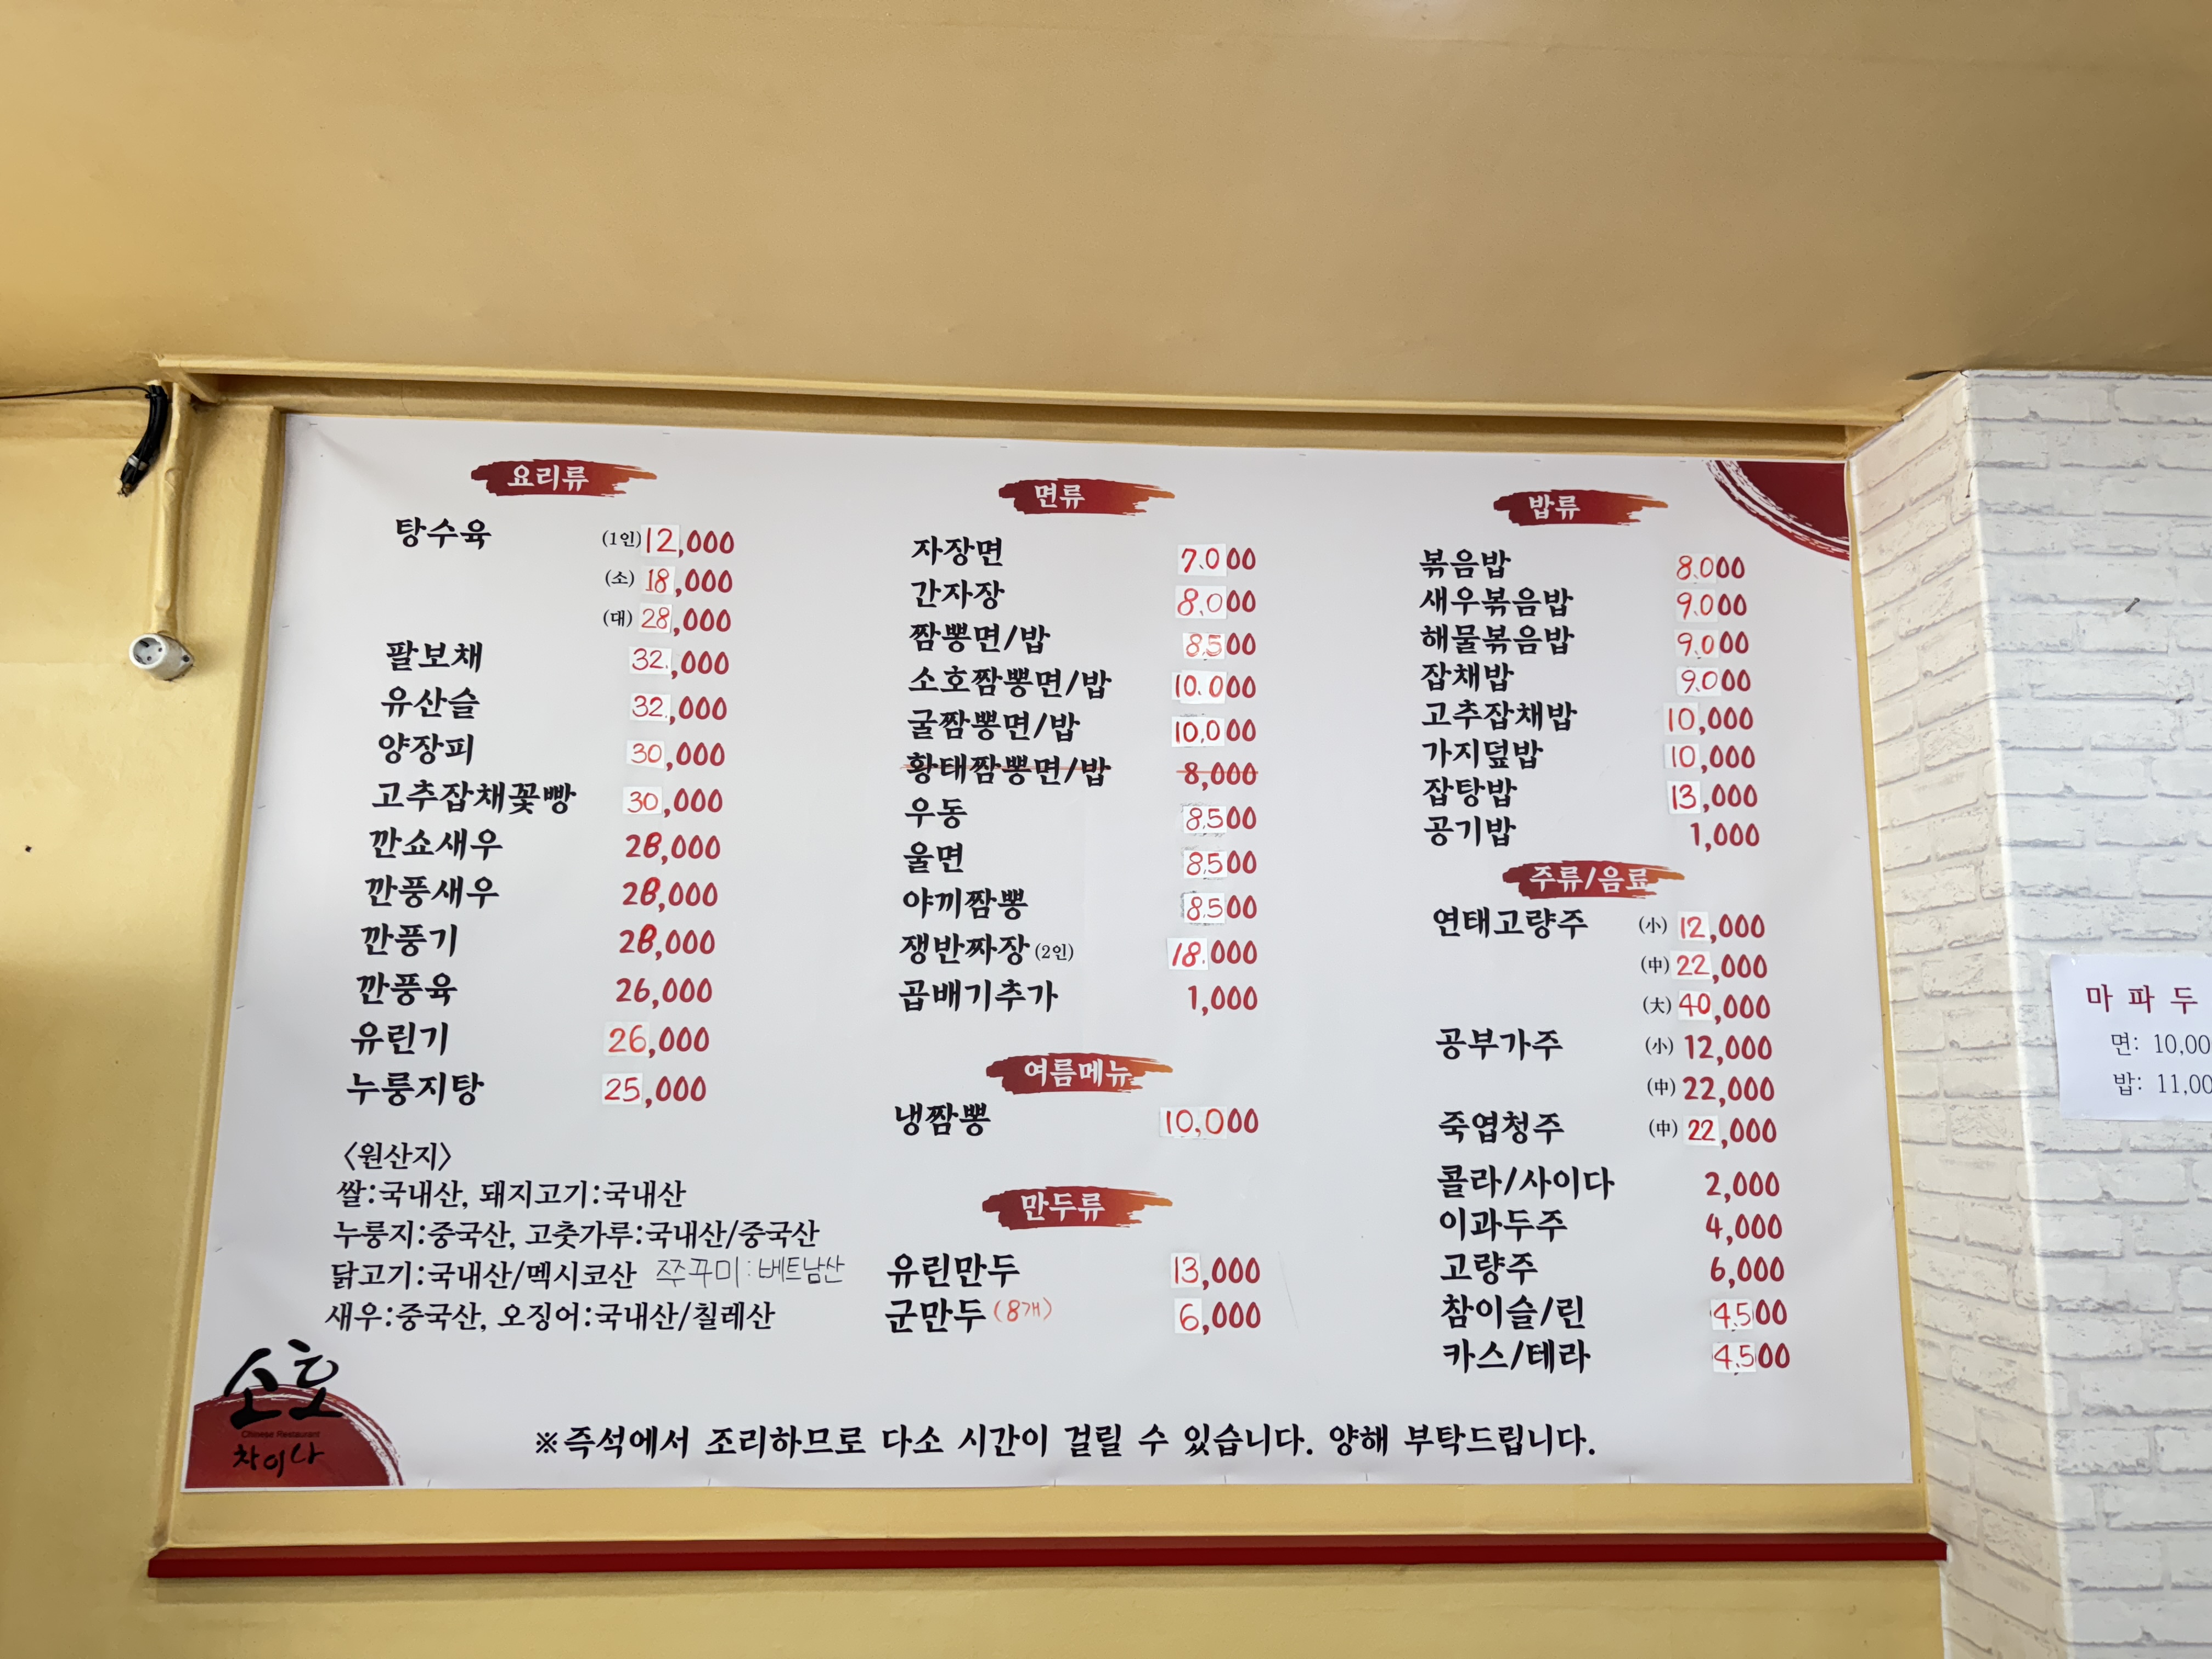 요리류
탕수육 (1인) 12,000
(소) 18,000
(대) 28,000
팔보채 32,000
유산슬 32,000
양장피 30,000
고추잡채꽃빵 30,000
깐쇼새우 28,000
깐풍새우 28,000
깐풍기 28,000
깐풍육 26,000
유린기 26,000
누룽지탕 25,000
<원산지>
쌀:국내산, 돼지고기:국내산
누룽지:중국산, 고춧가루:국내산/중국산
닭고기:국내산/멕시코산 쭈꾸미:베트남산
새우:중국산, 오징어:국내산/칠레산
면류
자장면 7.000
간자장 8.000
짬뽕면/밥 8.500
소호짬뽕면/밥 10.000
굴짬뽕면/밥 10.000
황태짬뽕면/밥 8,000
우동 8.500
울면 8.500
야끼짬뽕 8.500
쟁반짜장(2인) 18.000
곱배기추가 1,000
여름메뉴
냉짬뽕 10,000
만두류
유린만두 13,000
군만두 (8개) 6,000
밥류
볶음밥 8.000
새우볶음밥 9.000
해물볶음밥 9.000
잡채밥 9.000
고추잡채밥 10,000
가지덮밥 10,000
잡탕밥 13,000
공기밥 1,000
주류/음료
연태고량주 (小) 12,000
(中) 22,000
(大) 40,000
공부가주 (小) 12,000
(中) 22,000
죽엽청주 (中) 22,000
콜라/사이다 2,000
이과두주 4,000
고량주 6,000
참이슬/린 4.500
카스/테라 4.500
소호
Chinese Restaurant
차이나
※즉석에서 조리하므로 다소 시간이 걸릴 수 있습니다. 양해 부탁드립니다.
마 파 두
면: 10,00
밥: 11,00